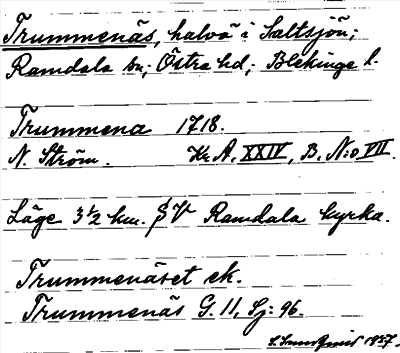 Trummenäs, halvö i Saltsjön;
Ramdala sn; Östra hd; Blekinge l.
Trummena 1718.
N. Ström. Kr. A. XXIV, B. N:o VII.
Läge 3½ km. SV Ramdala kyrka.
Trummenäset ek.
Trummenäs G. 11, Sj: 96.
1937.